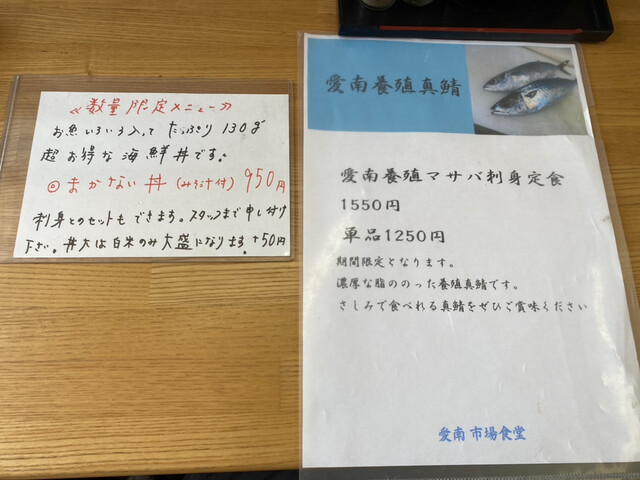 ≪数量限定メニュー≫
お魚いろいろ入って たっぷり 130g
超お得な海鮮丼です。
◎まかない丼(みそ汁付)950円
刺身とのセットもできます。スタッフまで申し付け
下さい。丼大は白米のみ大盛になります。+50円
愛南養殖真鯖
愛南養殖マサバ刺身定食
1550円
単品1250円
期間限定となります。
濃厚な脂ののった養殖真鯖です。
さしみで食べれる真鯖をぜひご賞味ください
愛南 市場食堂